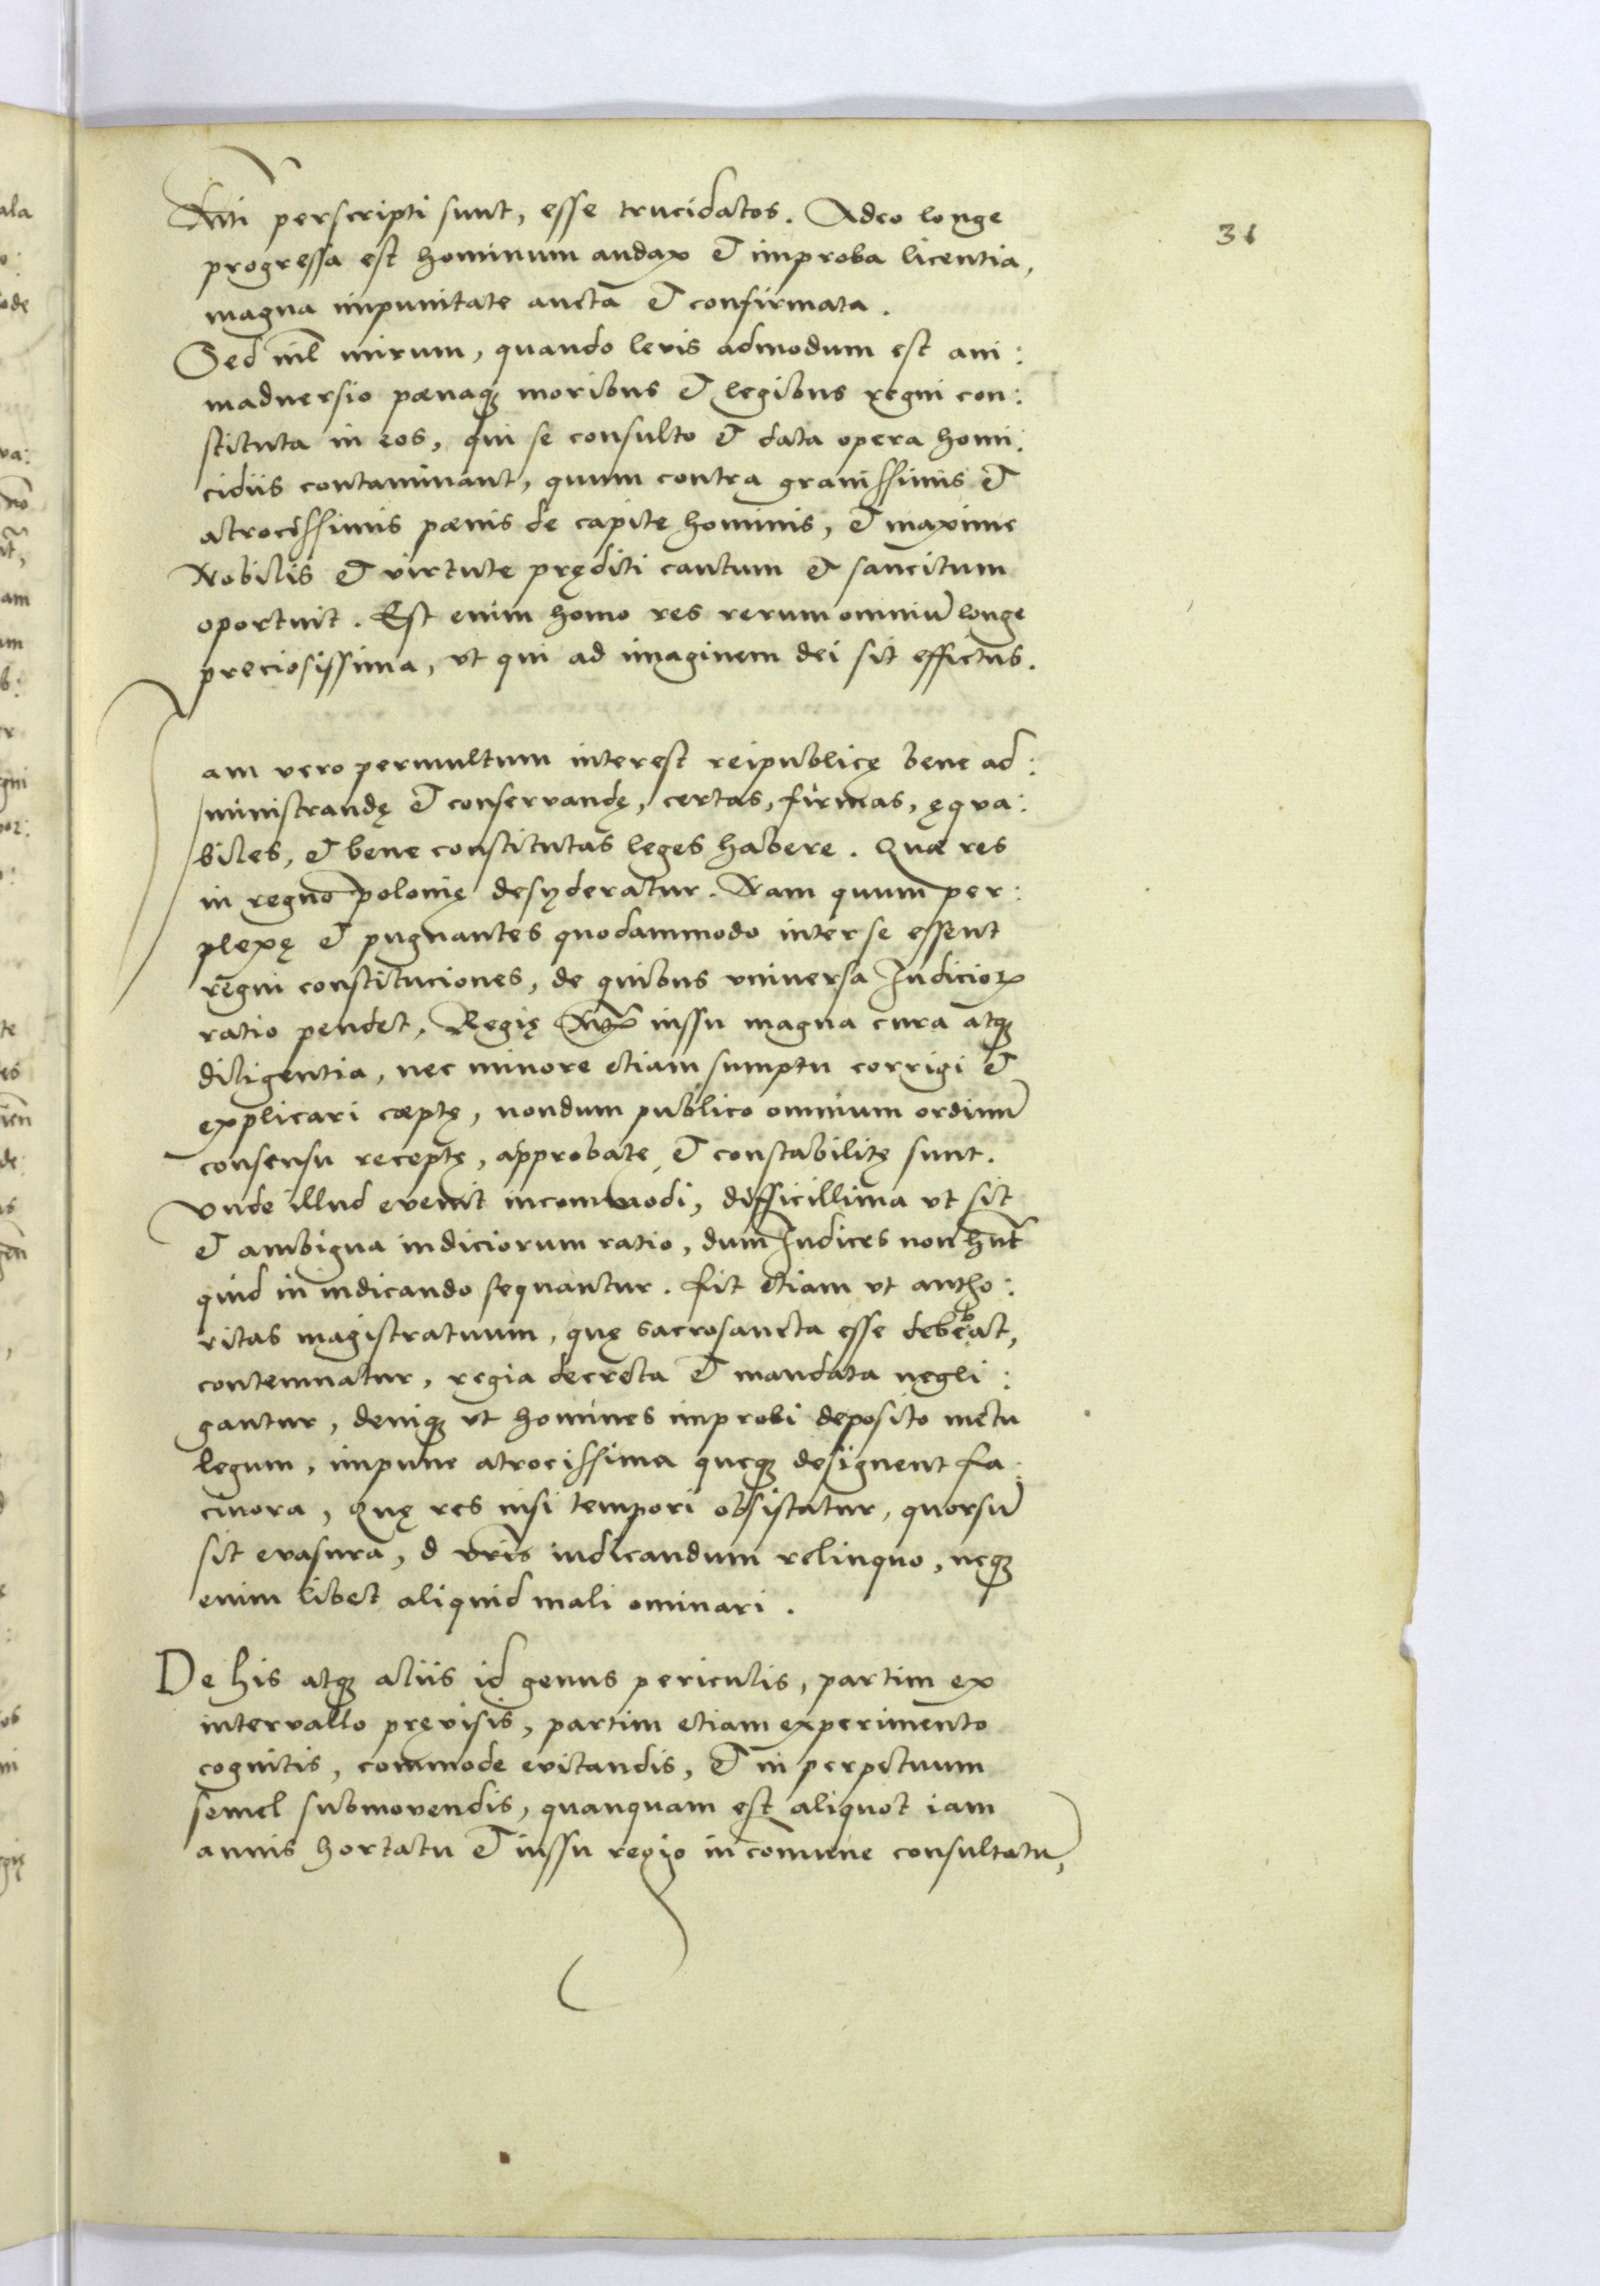 31
perscripti sunt, esse trucidatos. Adeo longe
progressa est hominum audax et improba licentia,
magna impunitate aucta et confirmata.
Sed nil mirum, quando levis admodum est ani:
maduersio pœnaqꝫ moribus et legibus regni con:
stituta in eos, qui se consulto et data opera homi:
cidiis contaminant, quum contra grauissimis et
atrocissimis pœnis de capite hominis, et maxime
Nobilis et virtute pręditi cautum et sancitum
oportuit. Est enim homo res rerum omniū longe
preciosissima, vt qui ad imaginem dei sit effictus.
Iam vero permultum interest reipublicę bene ad:
ministrandę et conservandę, certas, firmas, ęqva:
biles, et bene constitutas leges habere. Quæ res
in regno polonię desyderatur. Nam quum per:
plexę et pugnantes quodammodo inter se essent
regni constituciones, de quibus vniuersa Iudicioꝝ
ratio pendet, Regię iussu magna cura atqꝫ
diligentia, nec minore etiam sumptu corrigi et
explicari cœptę, nondum publico omnium ordinū
consensu receptę, approbate et constabilitę sunt.
Vnde illud evenit incommodi, difficillima vt sit
et ambigua iudiciorum ratio, dum Iudices non hn̄t
quid in iudicando sequantur. Fit etiam vt autho:
ritas magistratuum, quę sacrosancta esse debebat,
contemnatur, regia decreta et mandata negli:
gantur, deniqꝫ vt homines improbi deposito metu
legum, impune atrocissima queqꝫ designent fa:
cinora, Quę res nisi tempori obsistatur, quorsū
sit evasura, d vr̄is iudicandum relinquo, neqꝫ
enim libet aliquid mali ominari.
De his atqꝫ aliis id genus periculis, partim ex
intervallo pręvisis, partim etiam experimento
cognitis, commode evitandis, et in perpetuum
semel submovendis, quanquam est aliquot iam
annis hortatu et iussu regio in com̄une consultatū,